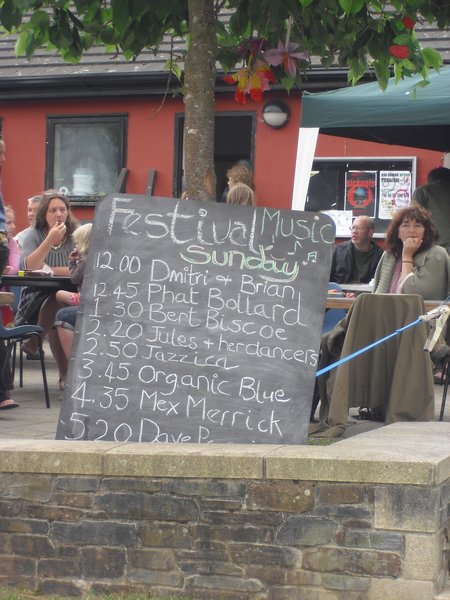 Festival Music
Sunday
12.00 Dmitri & Brian
12.45 Phat Bollard
1.30 Bert Biscoe
2.20 Jules & her dancers
2.50 Jazzica
3.45 Organic Blue
4.35 Mex Merrick
5.20 Dave